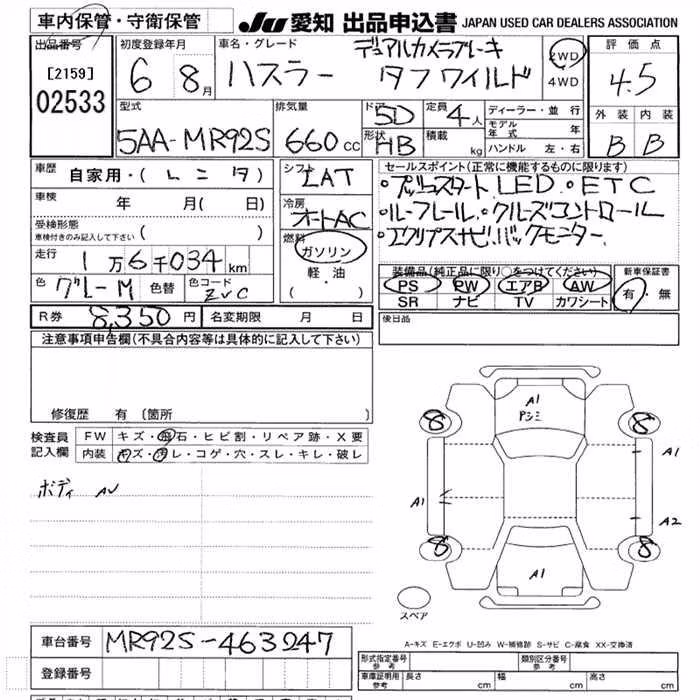 車内保管・守衛保管 JU 愛知 出品申込書 JAPAN USED CAR DEALERS ASSOCIATION
出品番号 初度登録年月 車名・グレード デュアルカメラブレーキ 2WD 評価点
[2159] 6 8月 ハスラー タフワイルド 4WD 4.5
02533 型式 排気量 ドア 5D 定員 4人 ディーラー・並行 外装 内装
5AA-MR92S 660cc 形状 HB 積載 kg モデル年式 年 B B
ハンドル 左・右
車歴 自家用・(レンタ) シフト IAT セールスポイント(正常に機能するものに限ります)
車検 年 月( 日) 冷房 オートAC ・プッシュスタート LED・ETC
受検形態 ( ) ・ルーフレール・クルーズコントロール
車検付きのみ記入して下さい 燃料 ・エクリプスナビ・バックモニター
走行 1万6千034km ガソリン
軽油 装備品(純正品に限り○をつけてください) 新車保証書
色 グレーM 色替 色コード ZVC ・( ) PS PW エアB AW 有・無
SR ナビ TV カワシート
R券 8,350円 名変期限 月 日 後日品
注意事項申告欄(不具合内容等は具体的に記入して下さい)
修復歴 有 〔箇所 〕
検査員 FW キズ・飛石・ヒビ割・リペア跡・X要
記入欄 内装 キズ・汚レ・コゲ・穴・スレ・キレ・破レ
ボディ AU
A1
Pシミ
8 8
A1
A1
A2
8 8
A1
スペア
A-キズ E-エクボ U-凹み W-補修跡 S-サビ C-腐食 XX-交換済
車台番号 MR92S-463247
登録番号
形式指定番号 参考 類別区分番号 参考
車庫証明用 参考 長さ cm 幅 cm 高さ cm